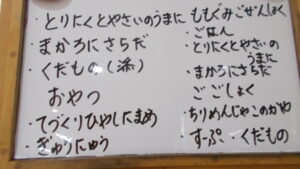 とりにくとやさいのうまに
・まかろにさらだ
・くだもの(添)
おやつ
・てづくりひやしたまめ
・ぎゅうにゅう
ももぐみごぜんしょく
・ごはん
・とりにくとやさいの
うまに
・まかろにさらだ
ごごしょく
・ちりめんじゃこのかゆ
・すーぷ・くだもの